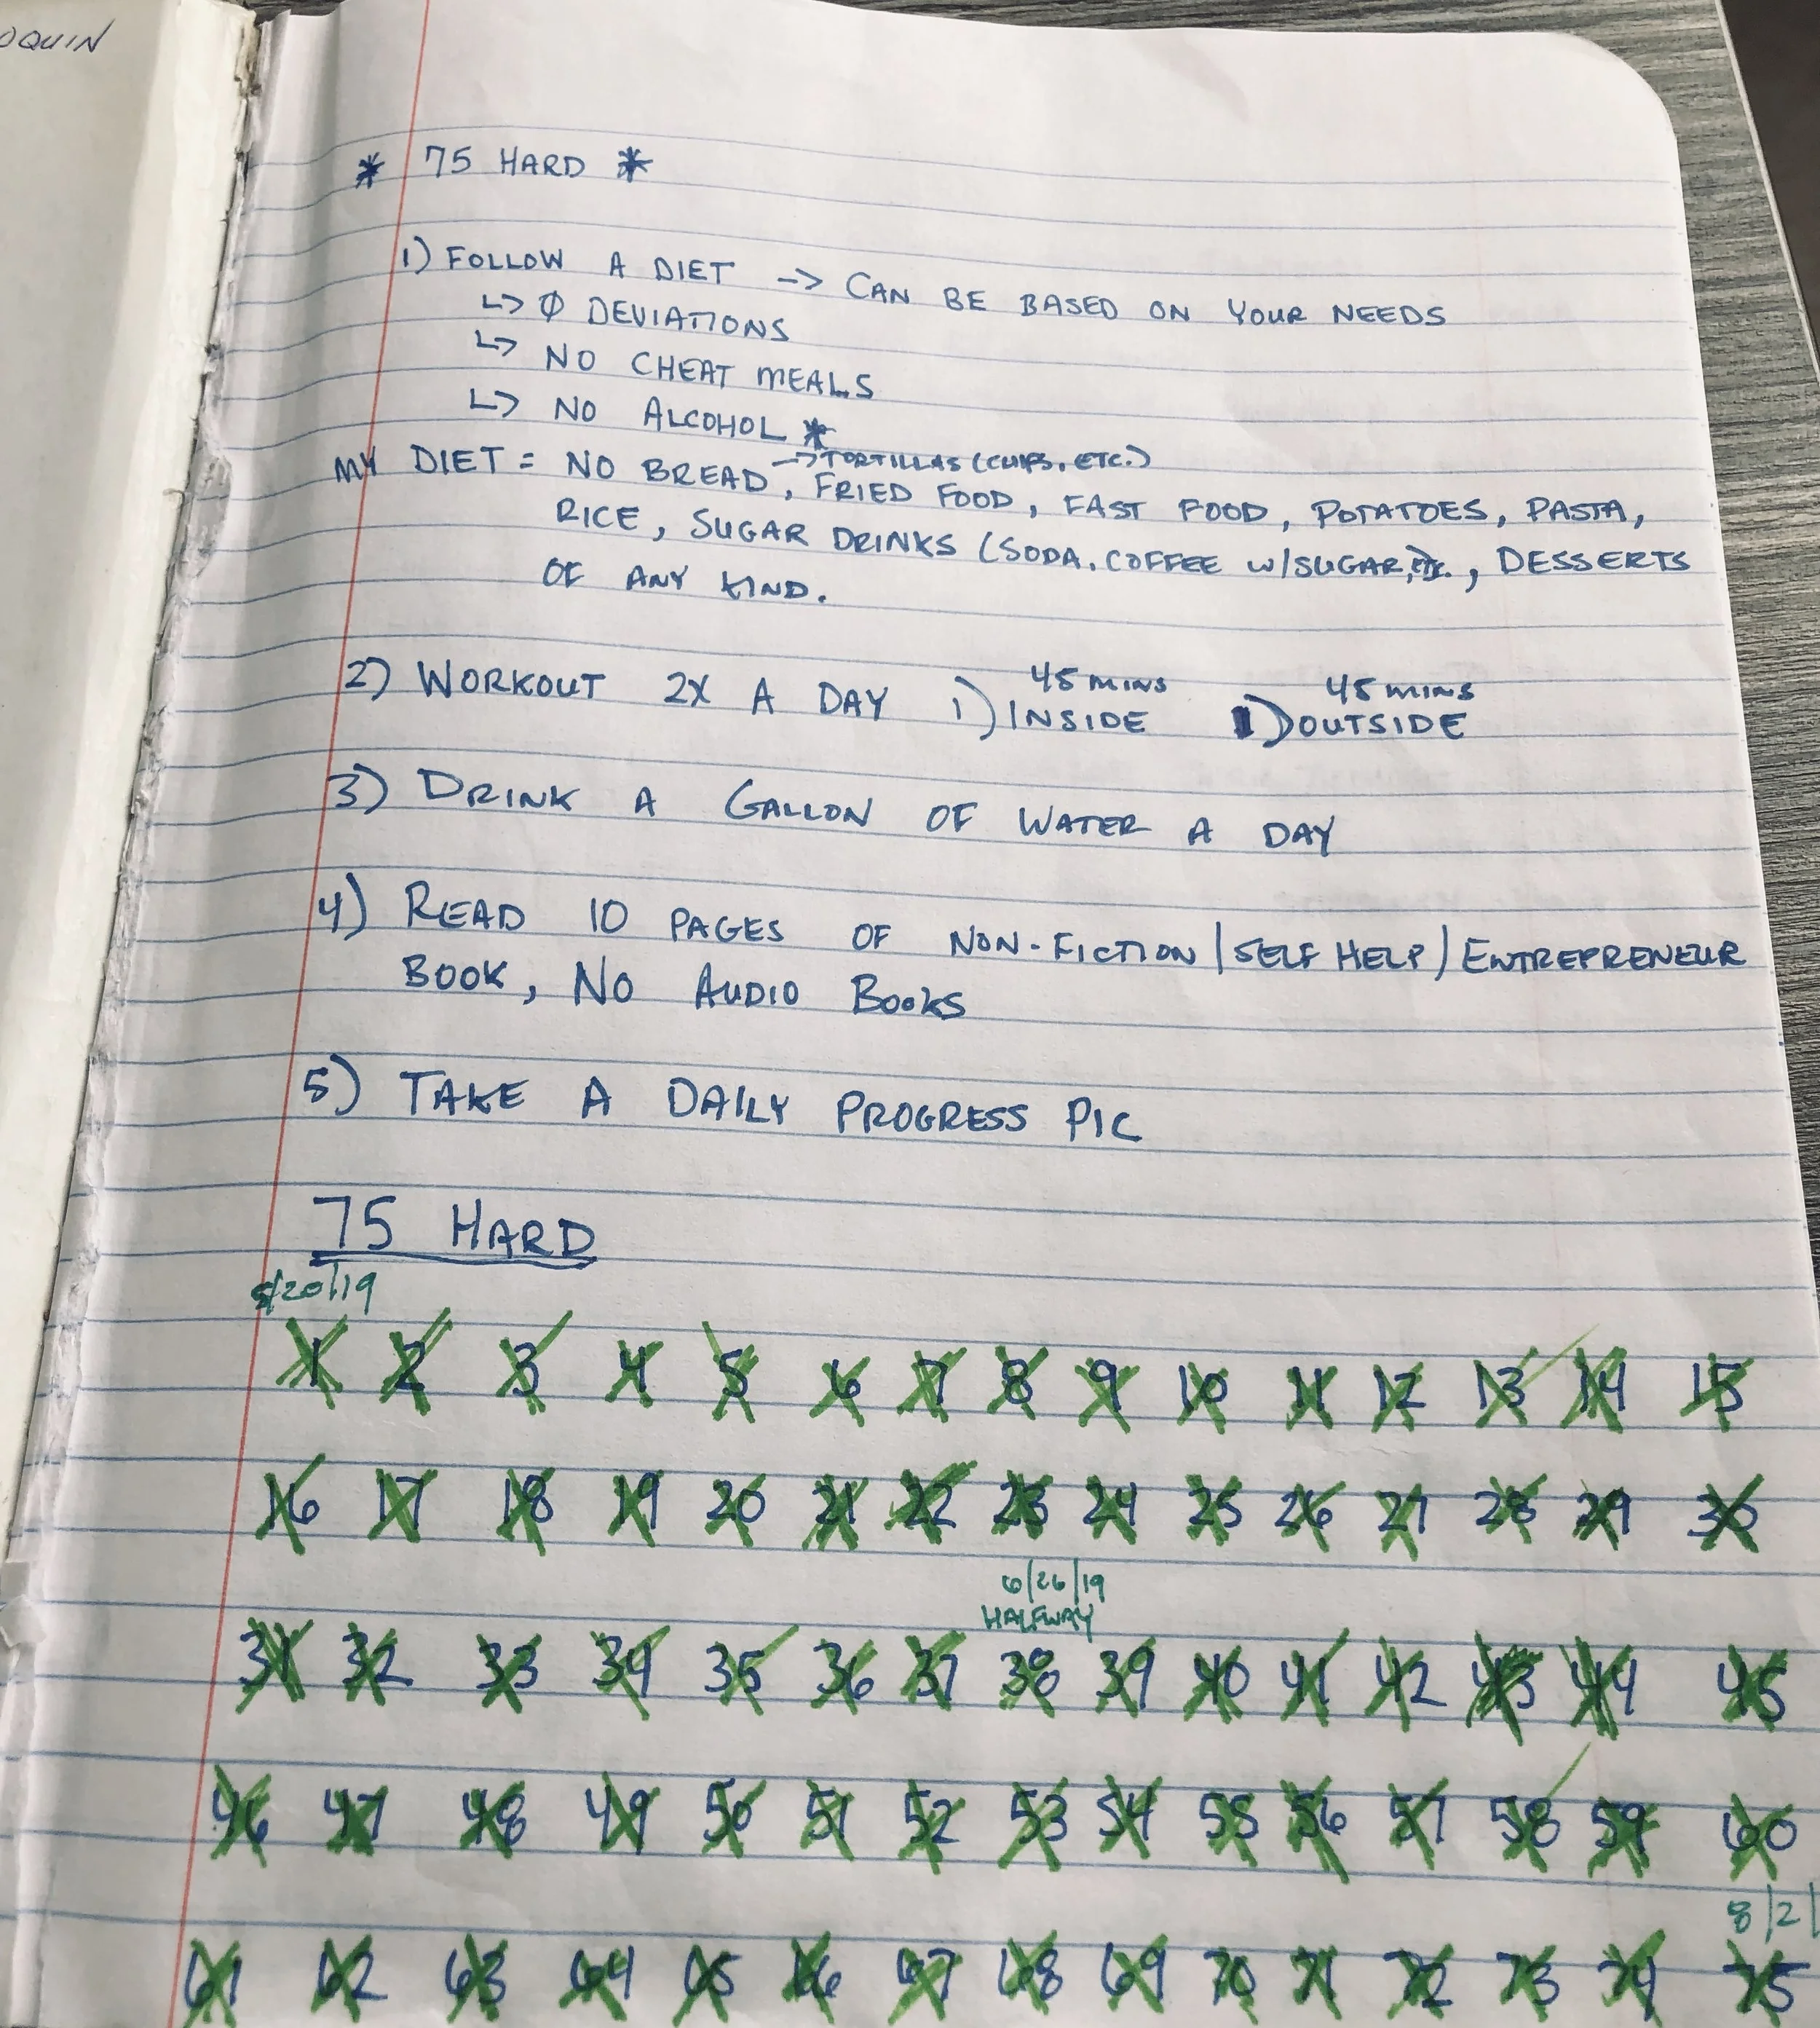 OQUIN
* 75 HARD *
1) FOLLOW A DIET -> CAN BE BASED ON YOUR NEEDS
↳ Ø DEVIATIONS
↳ NO CHEAT MEALS
↳ NO ALCOHOL *
→ TORTILLAS (CHIPS, ETC.)
MY DIET = NO BREAD, FRIED FOOD, FAST FOOD, POTATOES, PASTA,
RICE, SUGAR DRINKS (SODA, COFFEE W/SUGAR, ETC., DESSERTS
OF ANY KIND.
45 MINS 45 MINS
2) WORKOUT 2X A DAY 1) INSIDE 1) OUTSIDE
3) DRINK A GALLON OF WATER A DAY
4) READ 10 PAGES OF NON-FICTION | SELF HELP | ENTREPRENEUR
BOOK, NO AUDIO BOOKS
5) TAKE A DAILY PROGRESS PIC
75 HARD
5/20/19
1 2 3 4 5 6 7 8 9 10 11 12 13 14 15
16 17 18 19 20 21 22 23 24 25 26 27 28 29 30
6/26/19
HALFWAY
31 32 33 34 35 36 37 38 39 40 41 42 43 44 45
46 47 48 49 50 51 52 53 54 55 56 57 58 59 60
8/2/
61 62 63 64 65 66 67 68 69 70 71 72 73 74 75